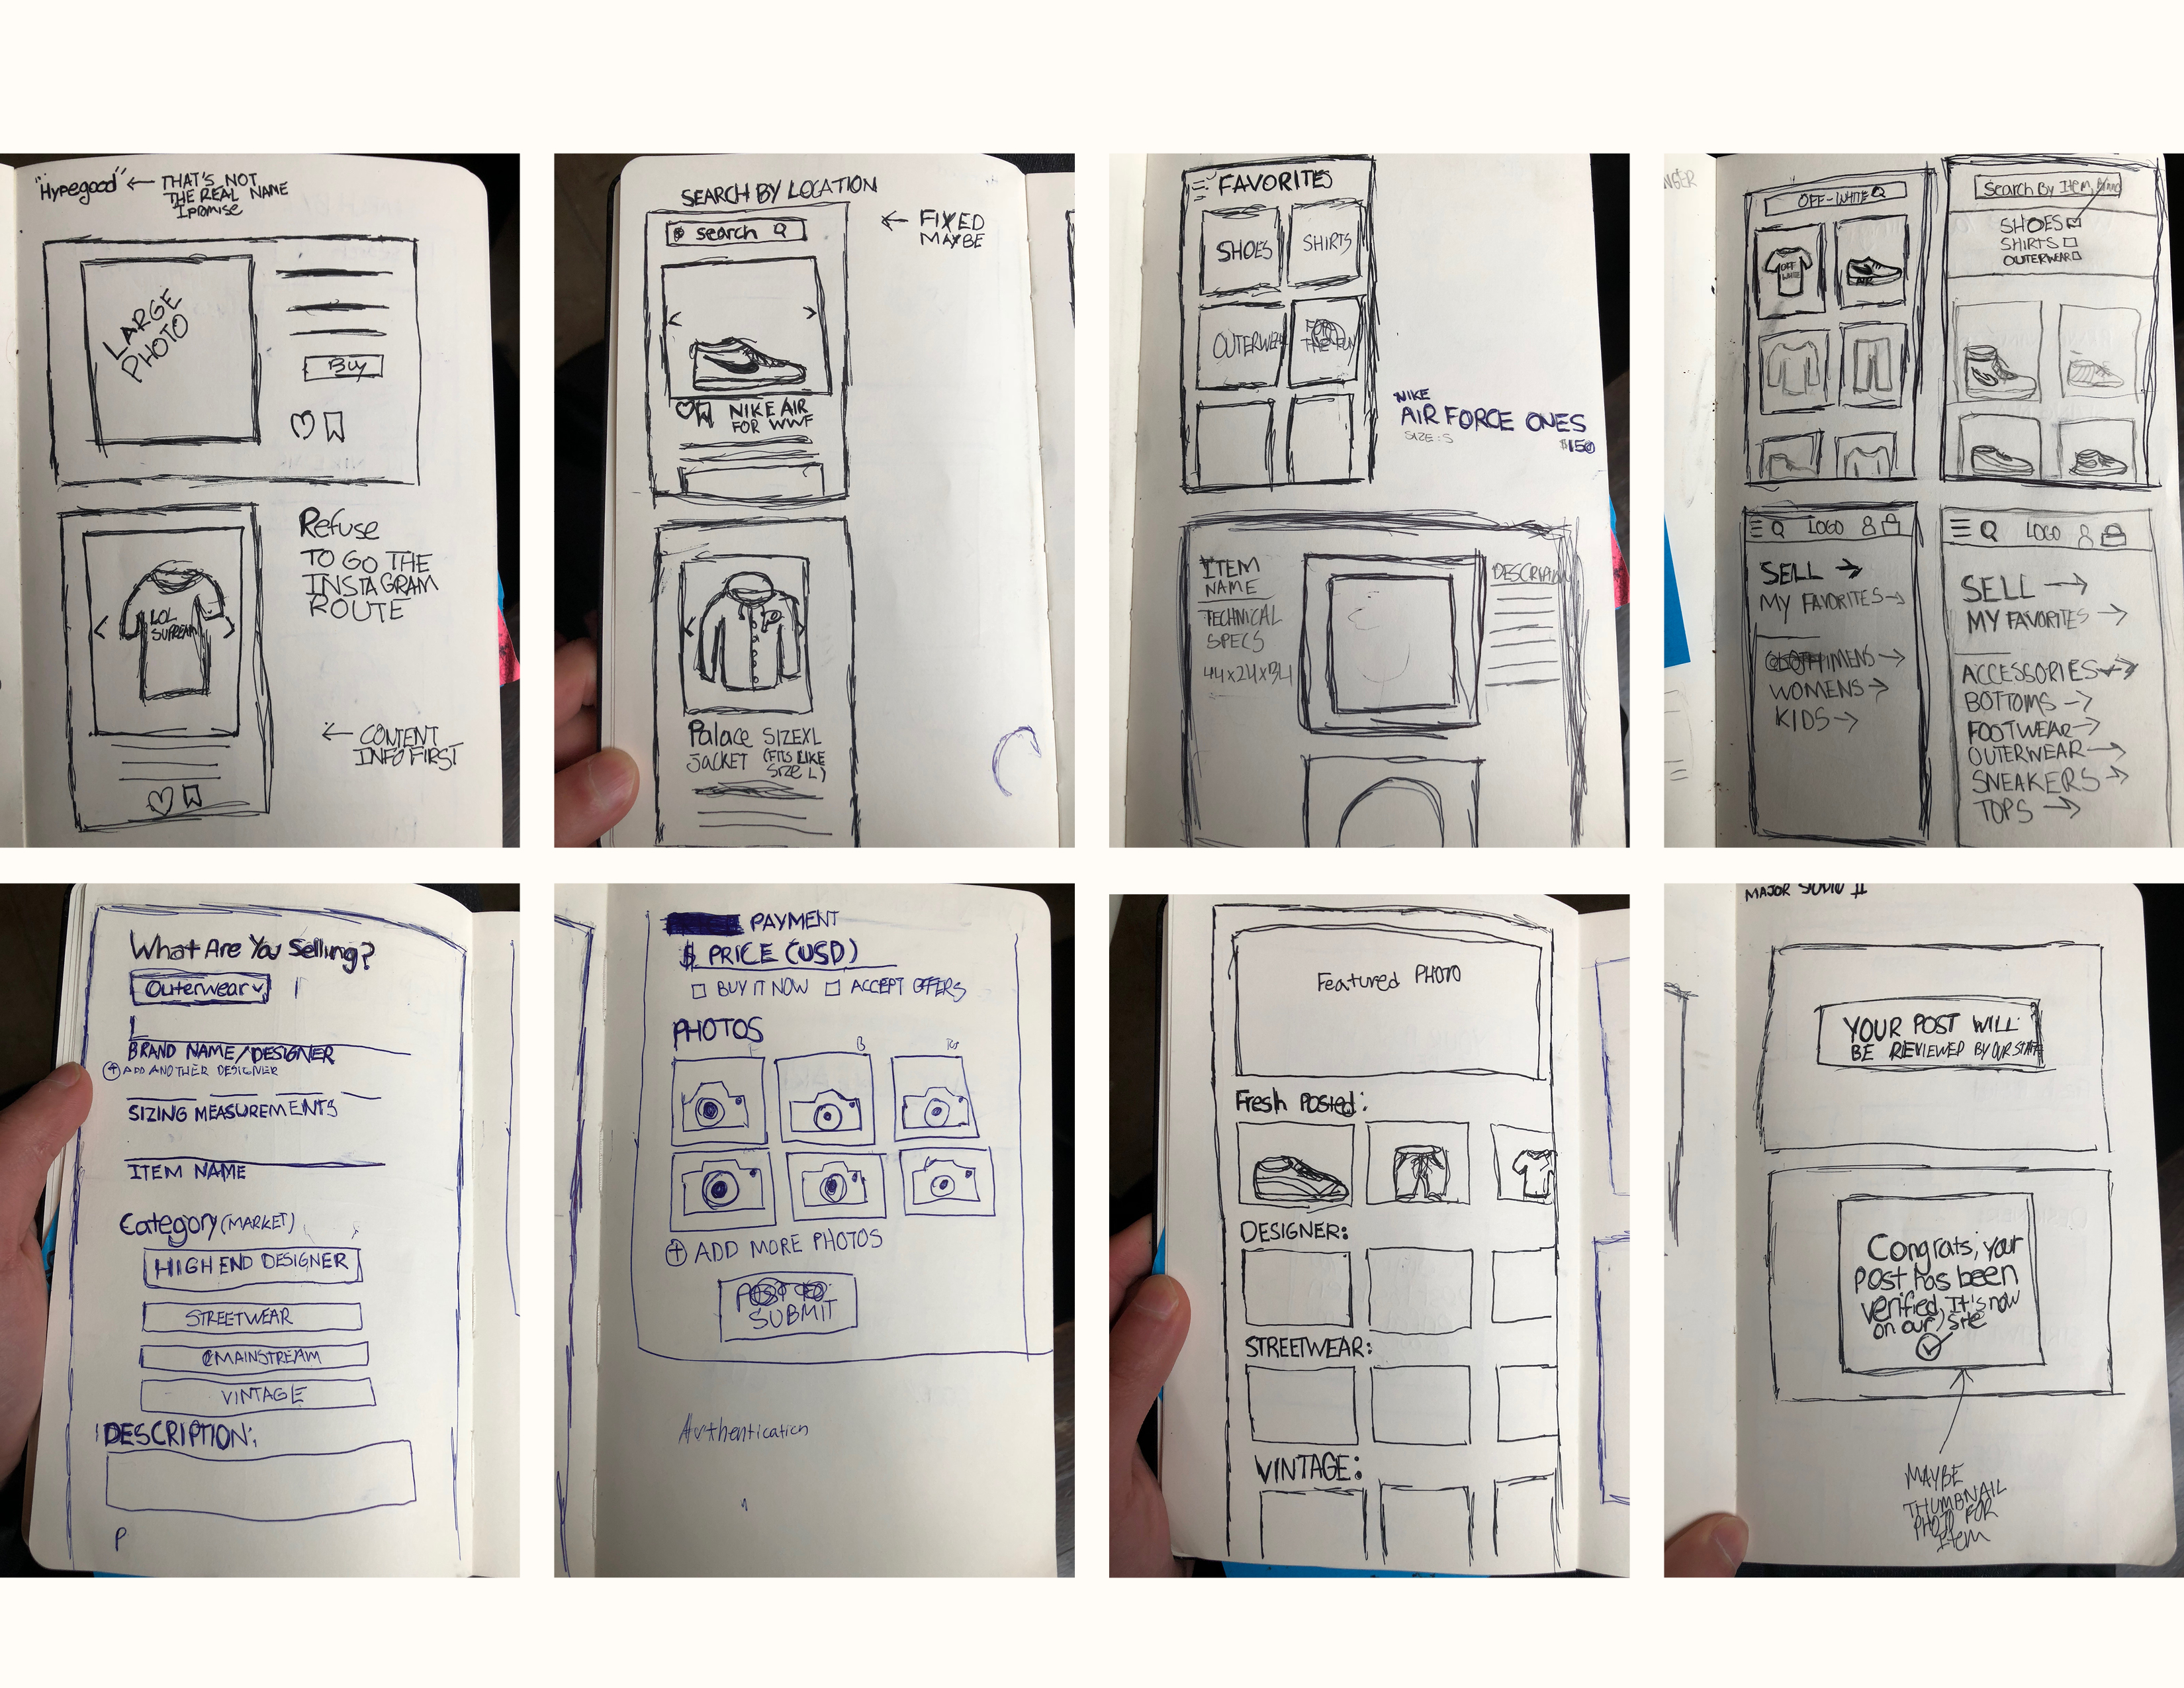 "Hypegood" ← THAT'S NOT
THE REAL NAME
I promise
LARGE
PHOTO
Buy
Refuse
TO GO THE
INSTAGRAM
ROUTE
LOL
SUPREAM
← CONTENT
INFO FIRST
SEARCH BY LOCATION
search
← FIXED
MAYBE
NIKE AIR
FOR WWF
Palace SIZE XL
JACKET (FITS LIKE
SIZE L)
FAVORITES
SHOES
SHIRTS
OUTERWEAR
NIKE
AIR FORCE ONES
SIZE: S
$150
ITEM
NAME
TECHNICAL
SPECS
44x24x34
DESCRIPTION
OFF-WHITE
OFF
WHITE
AIR
Search By Item, Brand
SHOES
SHIRTS
OUTERWEAR
LOGO
SELL →
MY FAVORITES →
MENS →
WOMENS →
KIDS →
LOGO
SELL →
MY FAVORITES →
ACCESSORIES →
BOTTOMS →
FOOTWEAR →
OUTERWEAR →
SNEAKERS →
TOPS →
What Are You Selling?
Outerwear
BRAND NAME/DESIGNER
+ ADD ANOTHER DESIGNER
SIZING MEASUREMENTS
ITEM NAME
Category (MARKET)
HIGH END DESIGNER
STREETWEAR
MAINSTREAM
VINTAGE
DESCRIPTION:
P
PAYMENT
$ PRICE (USD)
BUY IT NOW
ACCEPT OFFERS
PHOTOS
B
+ ADD MORE PHOTOS
SUBMIT
Authentication
Featured PHOTO
Fresh Posted:
DESIGNER:
STREETWEAR:
VINTAGE:
YOUR POST WILL
BE REVIEWED BY OUR STAFF
Congrats, your
post has been
verified, It's now
on our site
MAYBE
THUMBNAIL
PHOTO FOR
Item